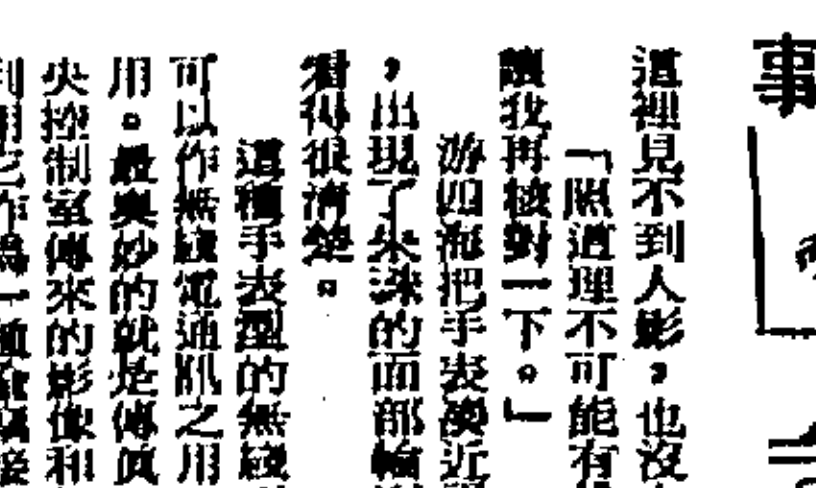 事
這裡見不到人影，也沒
「照道理不可能有
讓我再核對一下。」
游四海把手表湊近
，出現了朱洙的面部輪
看得很清楚。
這種手表型的無綫
可以作無綫電通訊之用
用。最奥妙的就是傳真
央控制室傳來的影像和
利用它作為一種